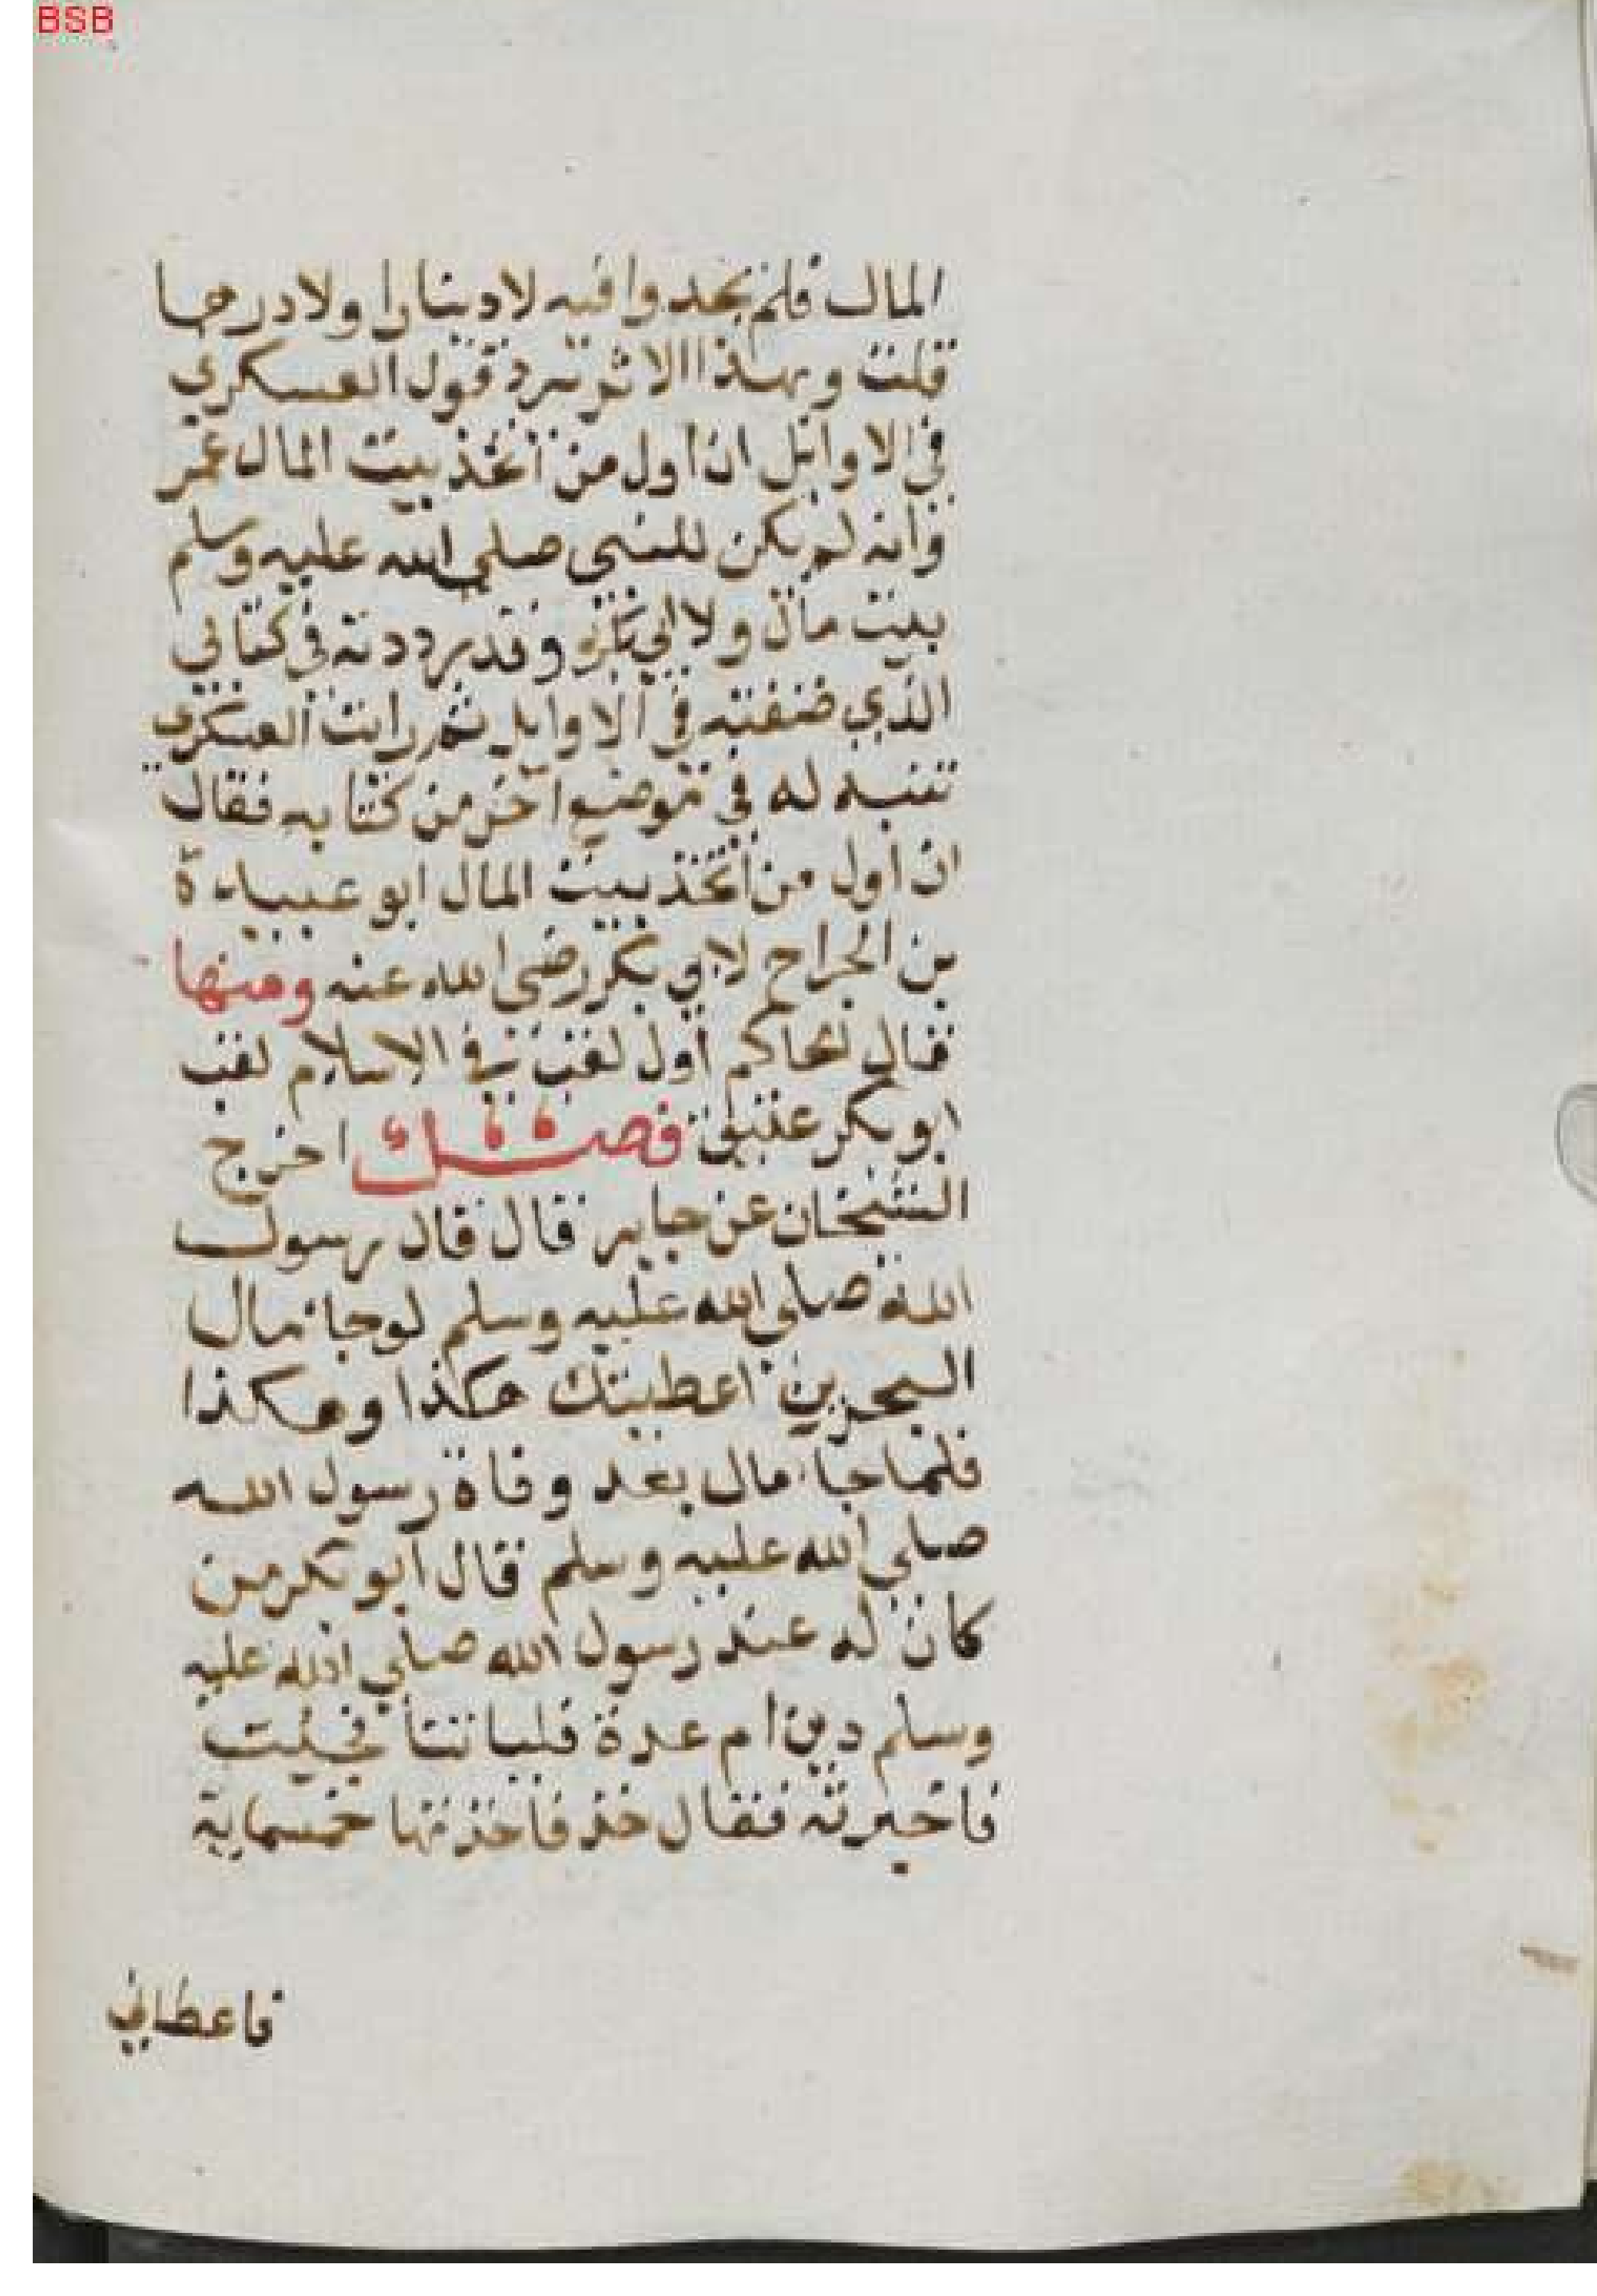 BSB
المال فلم يجدوا فيه لا دينارا ولا درهما
قلت وبهذا الاثر يرد قول العسكري
في الاوايل ان اول من اتخذ بيت المال عمر
وانه لم يكن للنبي صلى الله عليه وسلم
بيت مال ولا لابي بكر وقد رددته في كتابي
الذي صنفته في الاوايل ثم رايت العسكري
تنبه له في موضع اخر من كتابه فقال
ان اول من اتخذ بيت المال ابو عبيدة
بن الجراح لابي بكر رضى الله عنه ومنها
قال الحاكم اول لقب في الاسلام لقب
ابو بكر عتيق فصل اخرج
الشيخان عن جابر قال قال رسول
الله صلى الله عليه وسلم لو جا مال
البحرين اعطيتك هكذا وهكذا
فلما جا مال بعد وفاة رسول الله
صلى الله عليه وسلم قال ابو بكر من
كان له عند رسول الله صلي الله عليه
وسلم دين ام عدة فلياتنا فجيت
فاخبرته فقال خذ فاخذتها خمسماية
فاعطاني